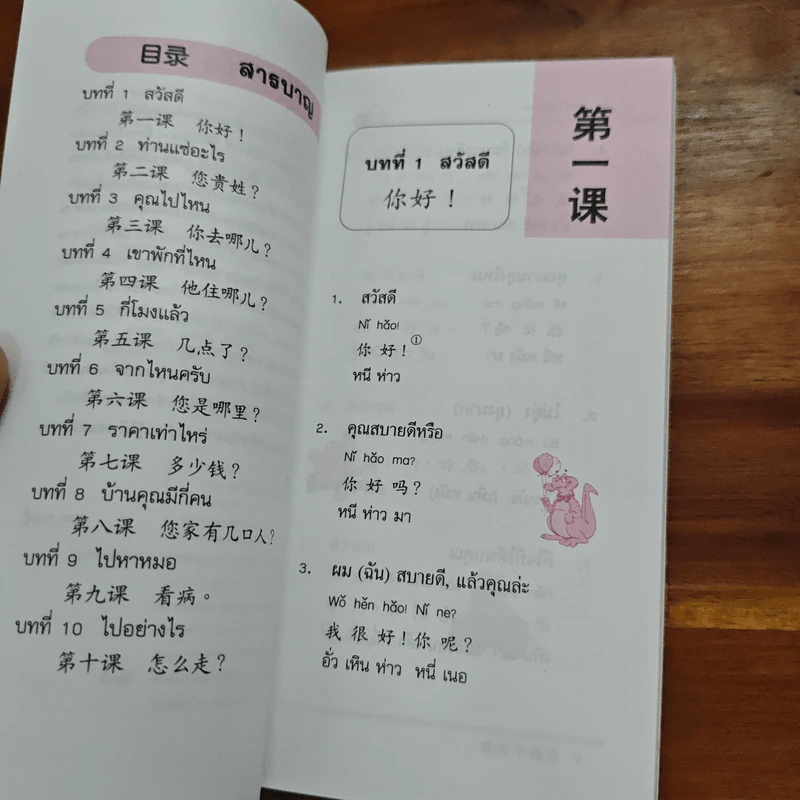 目录 สารบาญ
บทที่ 1 สวัสดี
第一课 你好！
บทที่ 2 ท่านแซ่อะไร
第二课 您贵姓？
บทที่ 3 คุณไปไหน
第三课 你去哪儿？
บทที่ 4 เขาพักที่ไหน
第四课 他住哪儿？
บทที่ 5 กี่โมงแล้ว
第五课 几点了？
บทที่ 6 จากไหนครับ
第六课 您是哪里？
บทที่ 7 ราคาเท่าไหร่
第七课 多少钱？
บทที่ 8 บ้านคุณมีกี่คน
第八课 您家有几口人？
บทที่ 9 ไปหาหมอ
第九课 看病。
บทที่ 10 ไปอย่างไร
第十课 怎么走？
第一课
บทที่ 1 สวัสดี
你好！
1. สวัสดี
Nǐ hǎo!
你 好！①
หนี ห่าว
2. คุณสบายดีหรือ
Nǐ hǎo ma?
你 好 吗？
หนี ห่าว มา
3. ผม (ฉัน) สบายดี, แล้วคุณล่ะ
Wǒ hěn hǎo! Nǐ ne?
我 很 好！你 呢？
อั่ว เหิน ห่าว หนี่ เนอ